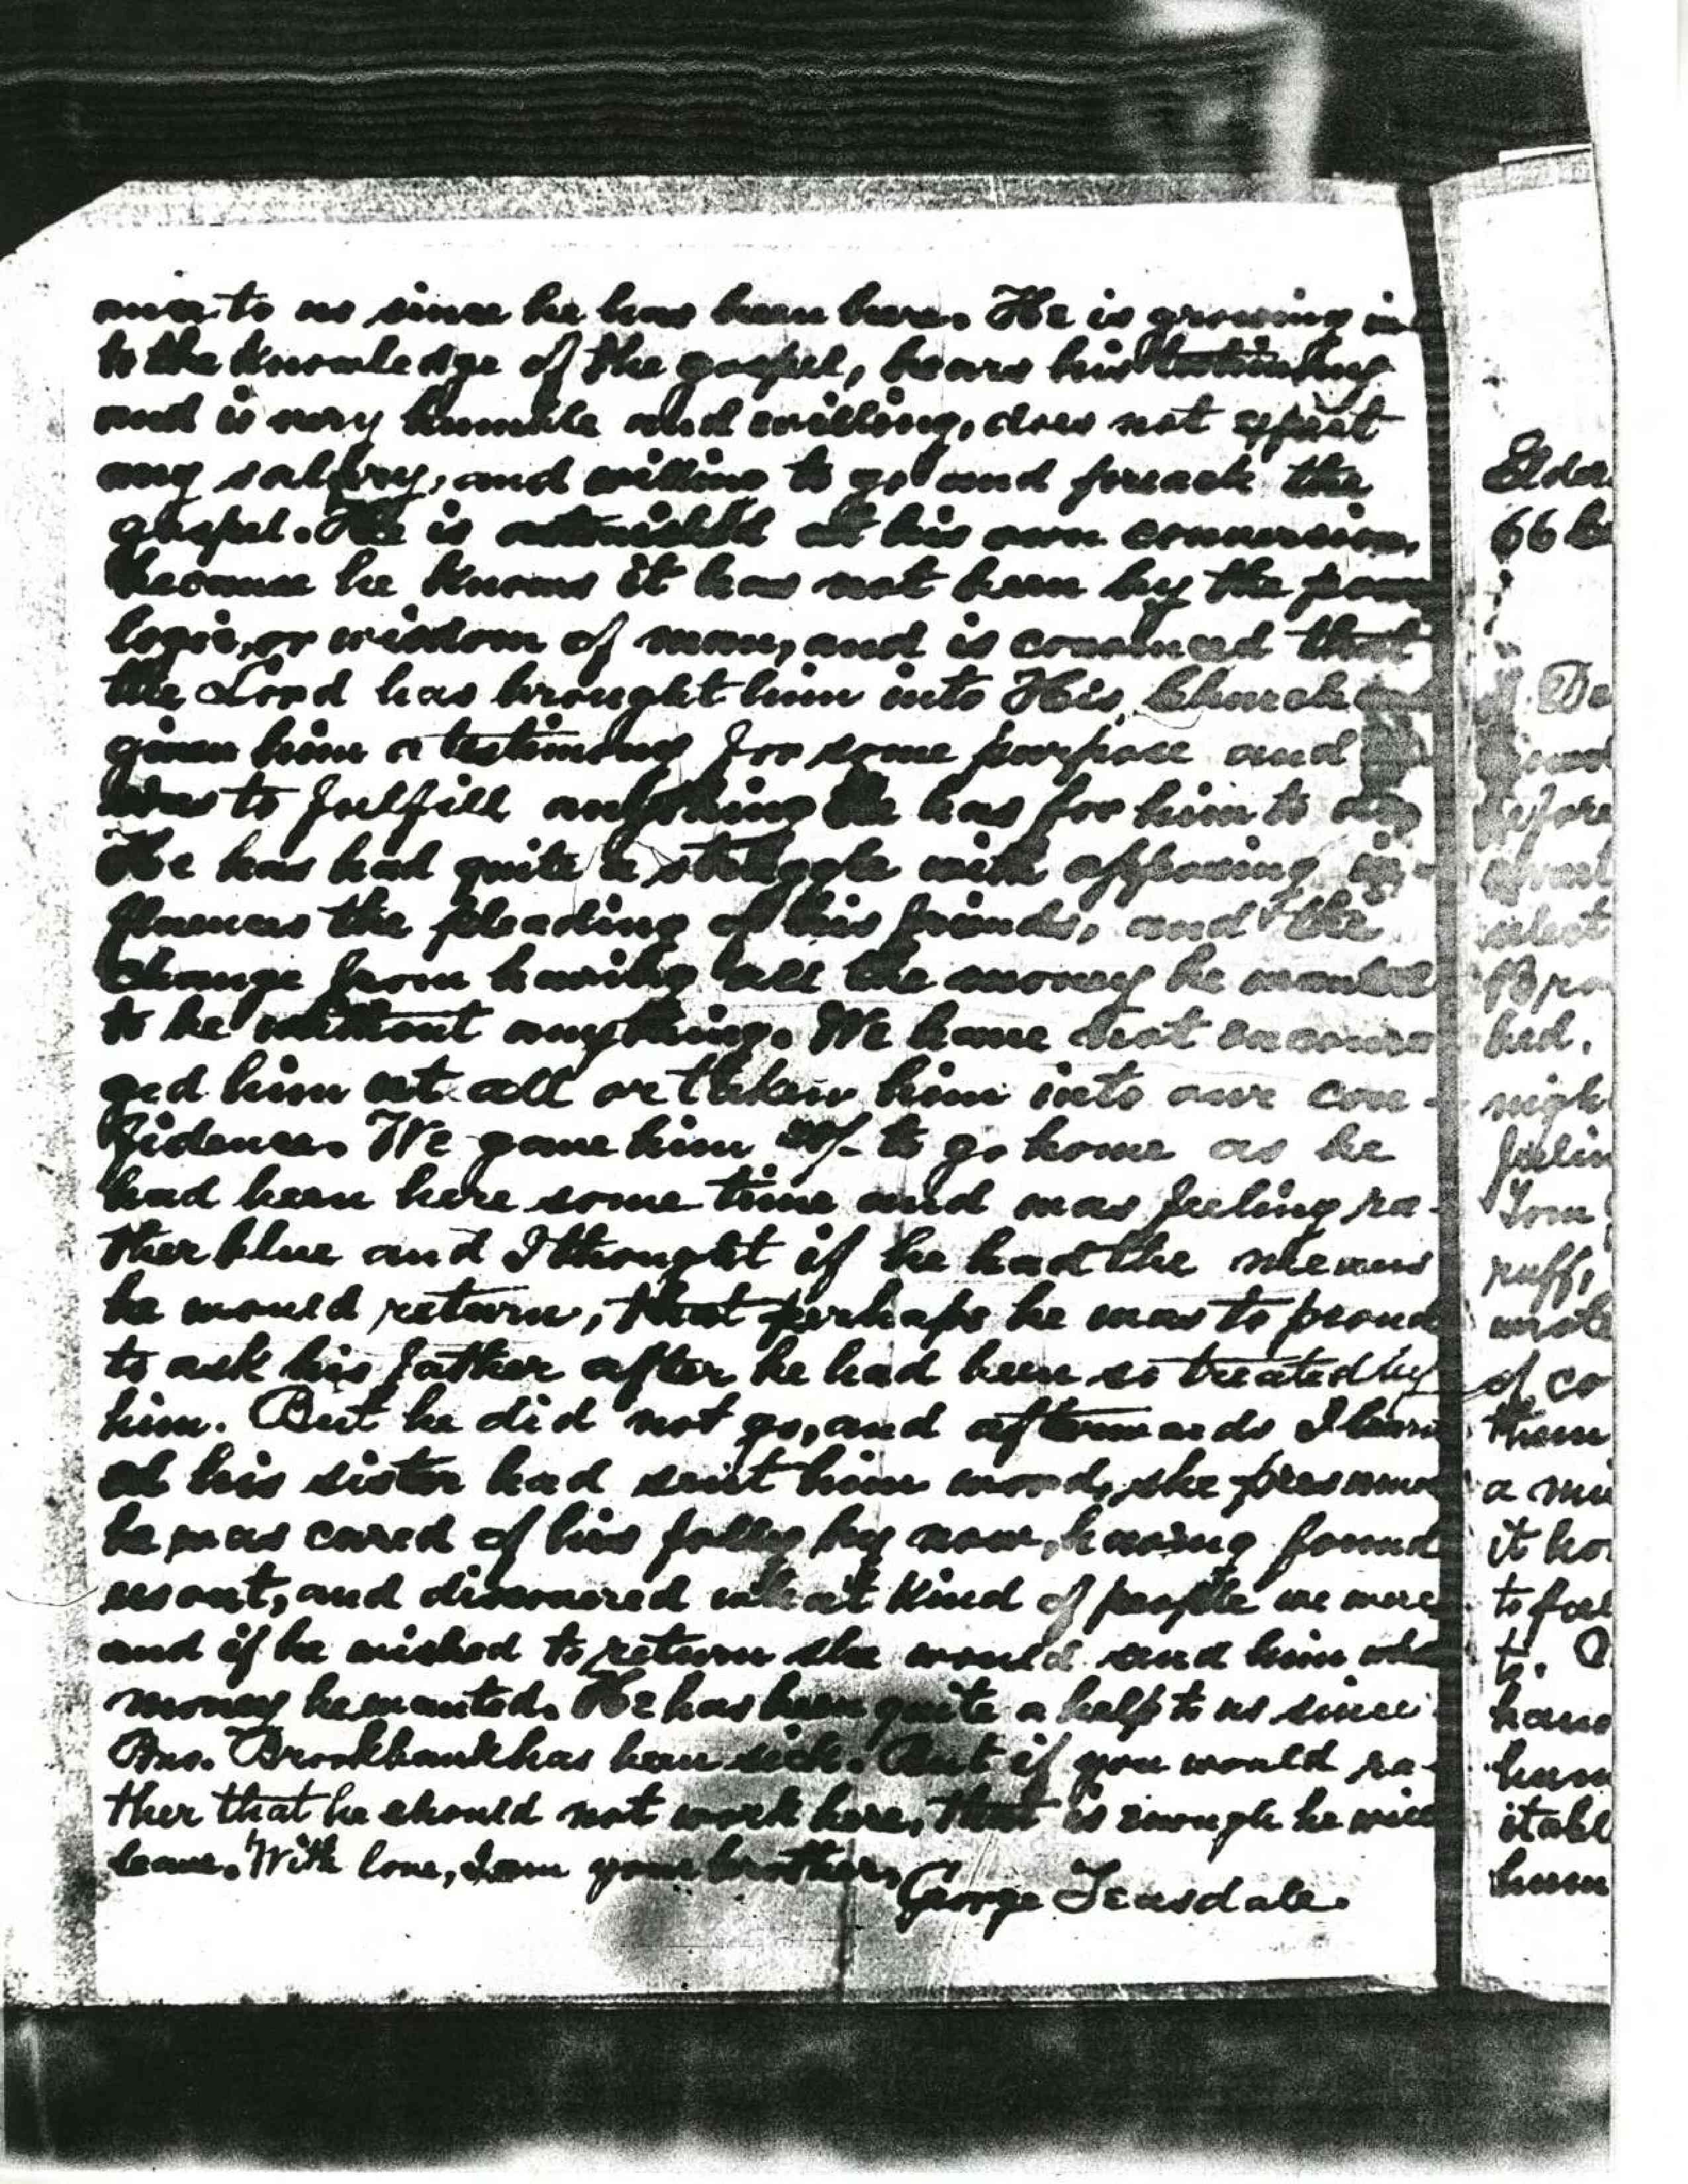 to us since he has been here. He is growing in
to the knowledge of the gospel, bears his testimony
and is very humble and willing, does not expect
any salary, and willing to go and preach the
gospel. He is astonished at his own conversion,
because he knows it has not been by the
logic, or wisdom of man, and is convinced that
the Lord has brought him into His Church and
given him a testimony for some purpose and
to fulfill anything He has for him to do
He has had quite a struggle with opposing in-
fluences the pleading of his friends, and the
change from having all the money he wanted
to be without anything. We have not encoura
ged him at all or taken him into our con-
fidence. We gave him to go home as he
had been here some time and was feeling ra-
ther blue and I thought if he had the means
he would return, that perhaps he was to proud
to ask his father after he had been so treated by
him. But he did not go, and afterwards I learn
ed his sister had sent him word, she presumed
he was cured of his folly by now, having found
us out, and discovered what kind of people we were
and if he wished to return she would send him
money he wanted. He has been quite a help to us since
Bro. Brookbank has been sick. But if you would ra-
ther that he should not work here, that is enough he will
leave. With love, I am your brother,
George Teasdale.
Elder
66
Bro
bed.
nigh
Tom
ruff,
of co
them
a
it
to
to.